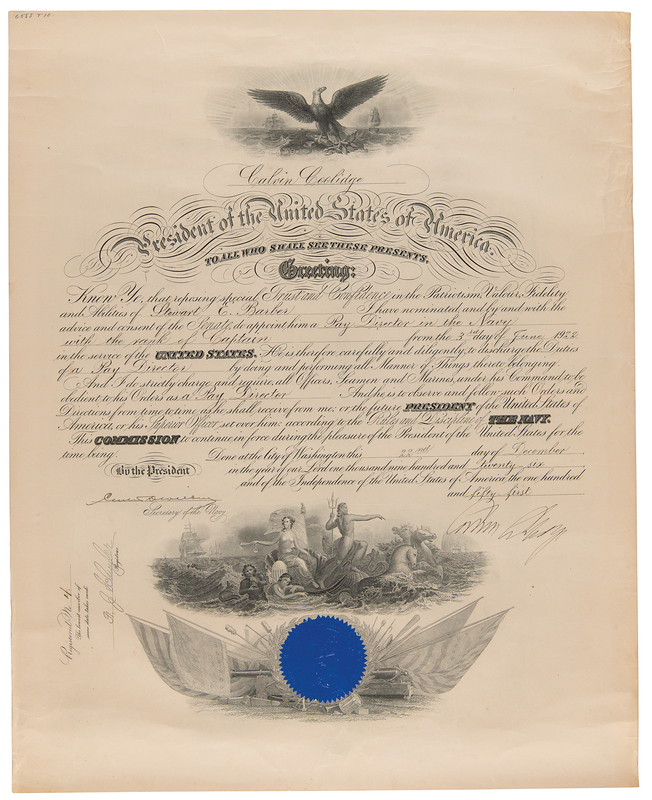 Calvin Coolidge
President of the United States of America.
TO ALL WHO SHALL SEE THESE PRESENTS,
Greeting:
Know Ye, that reposing special Trust and Confidence in the Patriotism, Valour, Fidelity
and Abilities of Stewart E. Barber I have nominated, and by and with the
advice and consent of the Senate, do appoint him a Pay Director in the Navy
with the rank of Captain from the 3rd day of June 1922
in the service of the UNITED STATES. He is therefore carefully and diligently to discharge the Duties
of a Pay Director by doing and performing all Manner of Things thereto belonging.
And I do strictly charge and require all Officers, Seamen and Marines, under his Command, to be
obedient to his Orders as a Pay Director And he is to observe and follow such Orders and
Directions from time to time as he shall receive from me, or the future PRESIDENT of the United States of
America, or his Superior Officer set over him, according to the Rules and Discipline of THE NAVY.
This COMMISSION to continue in force during the pleasure of the President of the United States for the
time being. Done at the City of Washington this 22nd day of December
By the President
in the year of our Lord one thousand nine hundred and Twenty-six
and of the Independence of the United States of America the one hundred
and fifty-first
Curtis D. Wilbur
Secretary of the Navy
Calvin Coolidge
Register
Register No. 4